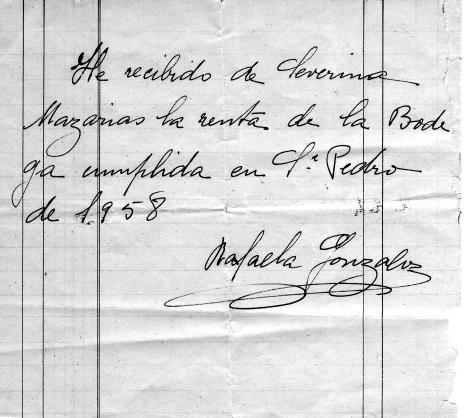 He recibido de Severina
Mazarias la renta de la Bode
ga cumplida en Sn Pedro
de 1958
Rafaela Gonzalez